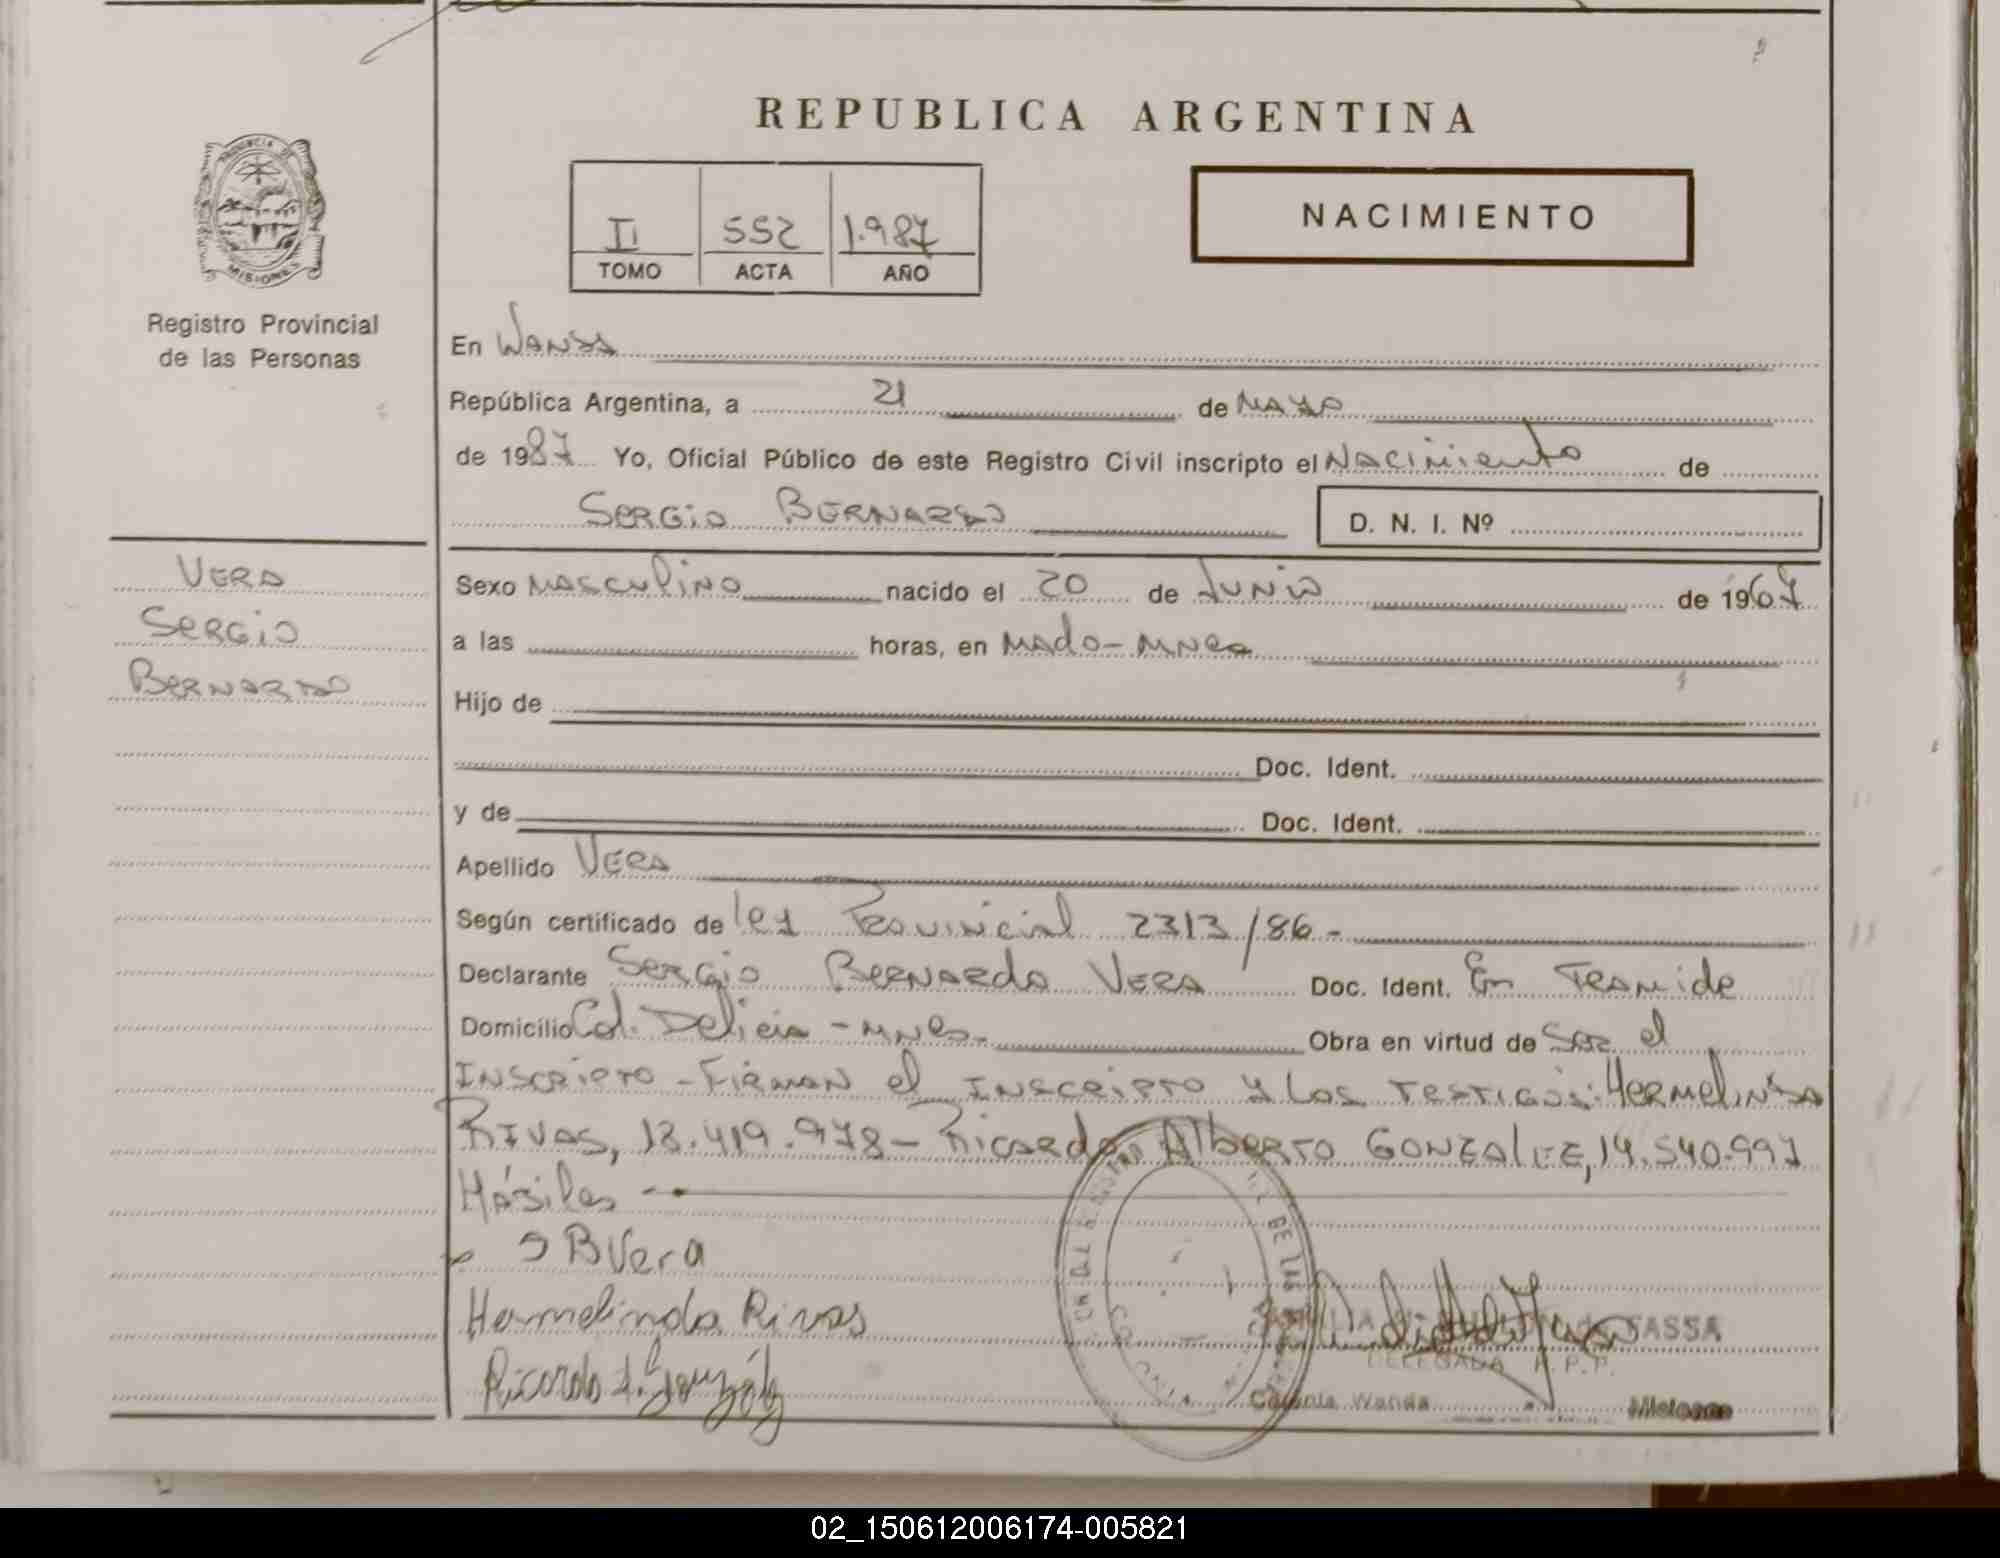 REPUBLICA ARGENTINA
PROVINCIA DE
MISIONES
Registro Provincial
de las Personas
II 552 1.987
TOMO ACTA AÑO
NACIMIENTO
En Wanda
República Argentina, a 21 de Mayo
de 1987 Yo, Oficial Público de este Registro Civil inscripto el Nacimiento de
Sergio Bernardo D. N. I. Nº
VERA
Sergio
Bernardo
Sexo masculino nacido el 20 de Junio de 1967
a las horas, en Mado-Mnes
Hijo de
Doc. Ident.
y de Doc. Ident.
Apellido Vera
Según certificado de ley Provincial 2313/86-
Declarante Sergio Bernardo Vera Doc. Ident. En Tramide
Domicilio Col. Delicia - Mnes. Obra en virtud de Ser el
Inscripto - Firman el Inscripto y los Testigos: Hermelinda
Rivas, 13.419.978 - Ricardo Alberto Gonzalez, 14.540.997
Hábiles -
S B Vera
Hermelinda Rivas
Ricardo A. González
TASSA
DELEGADA R.P.P.
Colonia Wanda Misiones
02_150612006174-005821